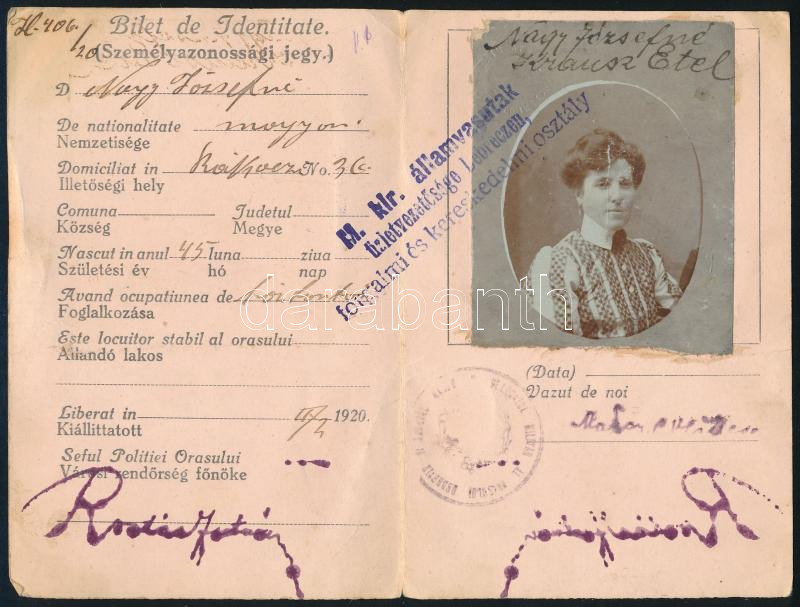 H. 406.
/20
Bilet de Identitate.
(Személyazonossági jegy.)
D Nagy Józsefné
De nationalitate magyar
Nemzetisége
Domiciliat in No. 36
Illetőségi hely
Comuna Judetul
Község Megye
Nascut in anul 45 luna ziua
Születési év hó nap
Avand ocupatiunea de
Foglalkozása
Este locuitor stabil al orasului
Állandó lakos
Liberat in 1920.
Kiállittatott
Seful Politiei Orasului
Városi rendőrség főnöke
Nagy Józsefné
Krausz Etel
M. kir. államvasutak
üzletvezetősége Debreczen,
forgalmi és kereskedelmi osztály
(Data)
Vazut de noi
darabanth